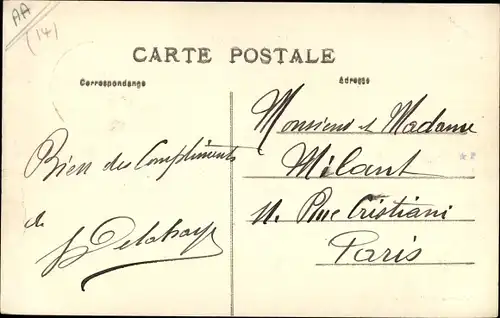 AA
(14)
CARTE POSTALE
Correspondance
Adresse
Bien des Compliments
de
Delahaye
Monsieur et Madame
Milant
11. Rue Cristiani
Paris